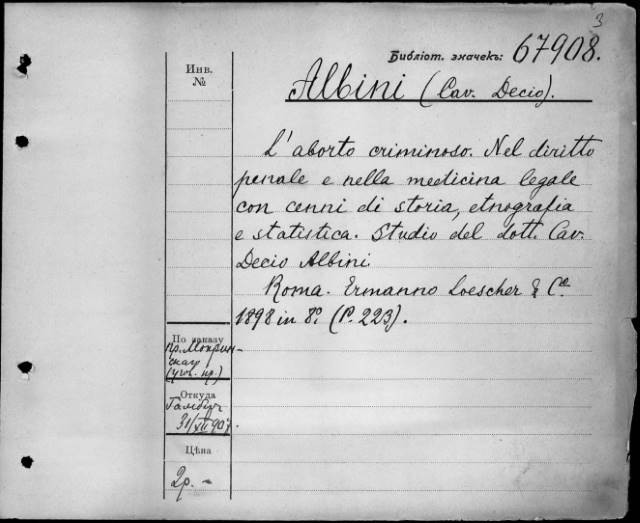 3
Библіот. значекъ: 67908.
Инв.
№
Albini (Cav. Decio).
L'aborto criminoso. Nel diritto
penale e nella medicina legale
con cenni di storia, etnografia
e statistica. Studio del dott. Cav.
Decio Albini.
Roma. Ermanno Loescher & Cº
1898 in 8º. (P. 223).
По заказу
пр. Мокрин-
скаго
Откуда
31/XII 907.
Цѣна
2р. -